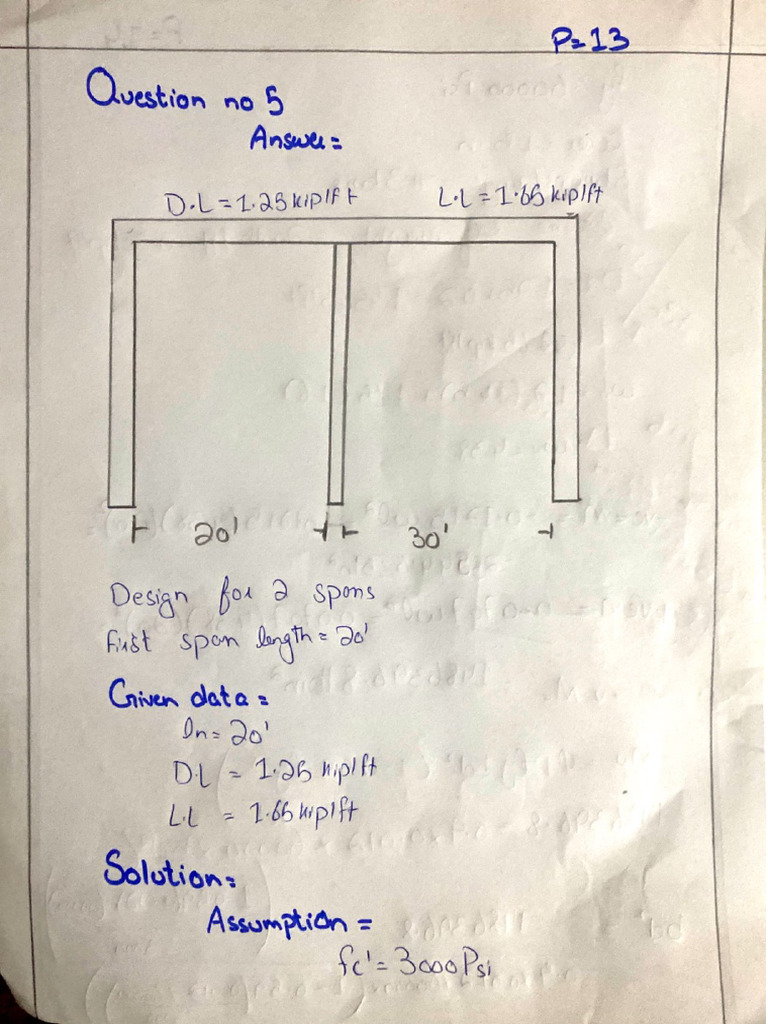 P=13
Question no 5
Answer=
D.L = 1.25 kip/ft L.L = 1.65 kip/ft
20' 30'
Design for 2 spans
First span length = 20'
Given data =
ln = 20'
D.L = 1.25 kip/ft
L.L = 1.65 kip/ft
Solution:
Assumption =
fc' = 3000 Psi